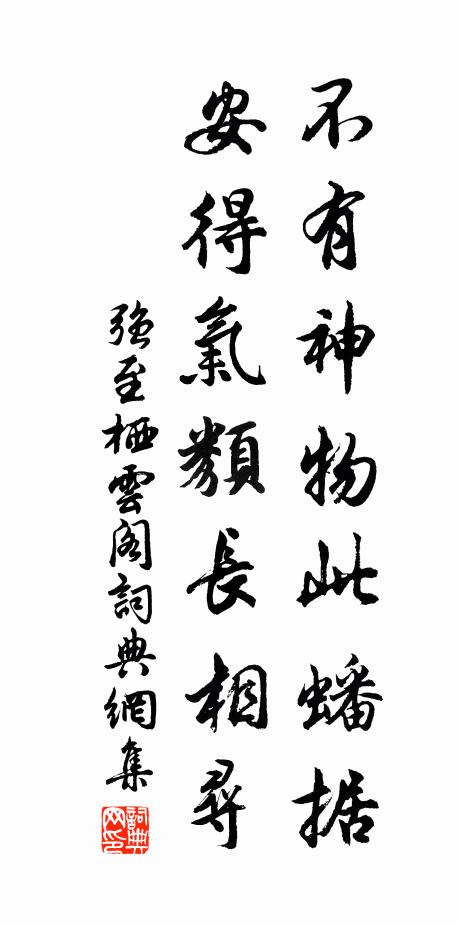 不有神物此蟠据
安得氣類長相尋
強至栖雲閣詞典網集
詞典网印